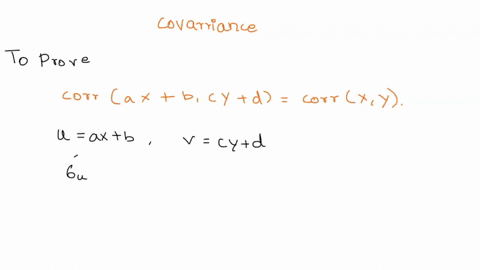 covarriance
To Prove
corr (ax + b, cy + d) = corr (x, y).
u = ax + b , v = cy + d
6u